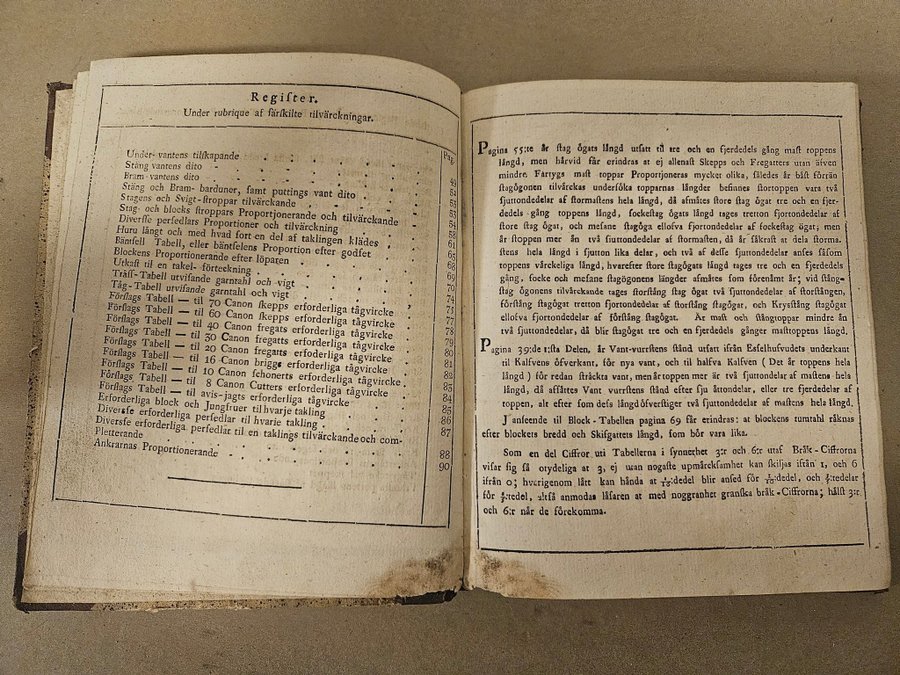 Regiſter.
Under rubrique af ſärſkilte tilvärckningar.
Pag.
Under-vantens tilſkapande
Stäng vantens dito 49
Bram-vantens dito 51
Stäng och Bram-barduner, ſamt puttings vant dito 52
Stagens och Svigt-ſtroppar tilvärckande 53
Stag- och blocks ſtroppars Proportjonerande och tilvärckande 54
Diverſſe perſedlars Proportioner och tilvärckning 58
Huru långt och med hvad fort en del af taklingen klädes 61
Bäntſell Tabell, eller bäntſelens Proportioner efter godſet 65
Blockens Proportionerande efter löpaten 68
Utkaſt til en takel-förteckning 69
Träſſ-Tabell utviſande garntahl och vigt 70
Tåg-Tabell utviſande garntahl och vigt 74
Förſlags Tabell — til 70 Canon ſkepps erforderliga tågvircke 75
Förſlags Tabell — til 60 Canon ſkepps erforderliga tågvircke 77
Förſlags Tabell — til 40 Canon fregats erforderliga tågvircke 78
Förſlags Tabell — til 30 Canon fregatts erforderliga tågvircke 79
Förſlags Tabell — til 20 Canon fregatts erforderliga tågvircke 80
Förſlags Tabell — til 16 Canon briggs erforderliga tågvircke 81
Förſlags Tabell — til 10 Canon ſchonerts erforderliga tågvircke 82
Förſlags Tabell — til 8 Canon Cutters erforderliga tågvircke 83
Förſlags Tabell — til avis-jagts erforderliga tågvircke 84
Erforderliga block och Jungfruer til hvarje takling 85
Diverſe erforderliga perſedlar til hvarie takling 86
Diverſſe erforderliga perſedlar til en taklings tilvärckande och com- 87
Pletterande 88
Ankrarnas Proportionerande 90
Pagina 55:te är ſtag ögats långd utſatt til tre och en fjerdedels gång maſt toppens
långd, men härvid får erindras at ej allenaſt Skepps och Fregatters utan äfven
mindre Fartygs maſt toppar Proportjoneras mycket olika, ſåledes är båſt förrän
ſtagögonen tilvärckas underſöka topparnas långder befinnes ſtortoppen vara två
ſjuttondedelar af ſtormaſtens hela långd, då afmåtes ſtore ſtag ögat tre och en fjer-
dedels gång toppens långd, ſockeſtag ögats långd tages tretton fjortondedelar af
ſtore ſtag ögat, och meſane ſtagöga ellofva fjortondedelar af fockeſtag ögat; men
är ſtoppen mer än två ſiuttondedelar af ſtormaſten, då är ſåkraſt at dela ſtorma.
ſtens hela långd i ſjutton lika delar, och två af deſſe ſjuttondedelar anſes ſåſom
toppens vårckeliga långd, hvarefter ſtore ſtagögats långd tages tre och en fjerdedels
gång, ſocke och meſane ſtagögonens långder afmåtes ſom förenämt år; vid ſtång-
ſtag ögonens tilvårckande tages ſtorſtång ſtag ögat två ſjuttondedelar af ſtorſtången,
förſtång ſtagögat tretton fjortondedelar af ſtorſtång ſtagögat, och Krysſtång ſtagögat
ellofva fjortondedelar af förſtång ſtagögat. Är maſt och ſtångtoppar mindre än
två ſjuttondedelar, då blir ſtagögat tre och en fjerdedels gånger maſttoppens långd.
Pagina 39:de 1:ſta Delen, år Vant-vurrſtens ſtånd utſatt ifrån Eſelhufvudets underkant
til Kalfvens öfverkant, för nya vant, och til halfva Kalfven ( Det är toppens hela
långd ) för redan ſträckta vant, men år toppen mer år två ſjuttondedelar af maſtens hela
långd, då affättes Vant vurrſtens ſtånd efter ſju åttondelar, eller tre fjerdedelar af
toppen, alt efter ſom deſs långd öfverſtiger två ſjuttondedelar af maſtens hela långd.
J anſeende til Block-Tabellen pagina 69 får erindras: at blockens rumtahl råknas
efter blockers bredd och Skifgattets långd, ſom bör vara lika.
Som en del Ciffror uti Tabellerna i ſynnerhet 3:r och 6:r utaf Bråk-Ciffrorna
viſar ſig ſå otydeliga at 3, ej utan nogaſte upmårkſamhet kan ſkiljas ifrån 1, och 6
ifrån 0; hvarigenom lått kan hånda at dedel blir anſed för dedel, och tedelar
för tedel, altſå anmodas låſaren at med noggranhet granska bråk-Ciffrorna; hålſt 3:r
och 6:r når de förekomma.